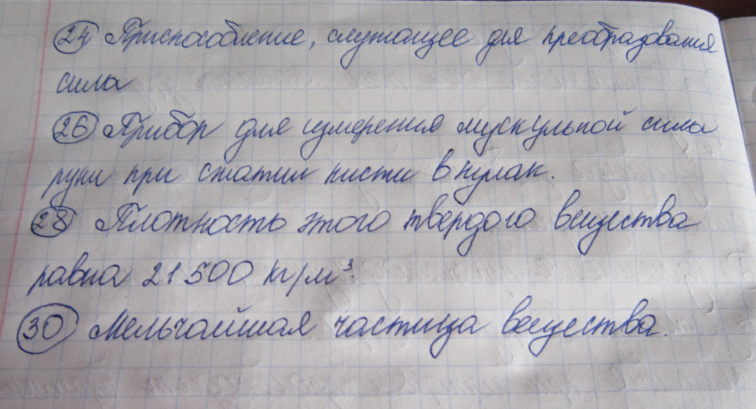 24 Приспособление, служащее для преобразования
сила
26 Прибор для измерения мускульной сила
руки при сжатии кисти в кулак.
28 Плотность этого твердого вещества
равна 21500 кг/м³.
30 Мельчайшая частица вещества.